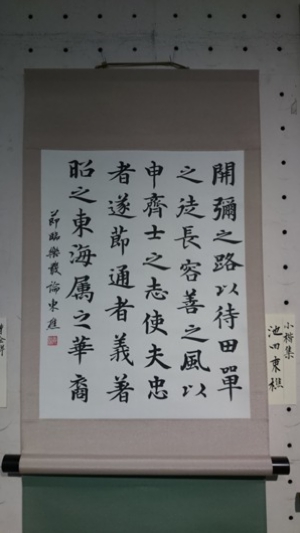 開彌之路以待田單
之徒長容善之風以
申齊士之志使夫忠
者遂節通者義著
昭之東海属之華裔
節臨樂毅論東
小楷集
池田東